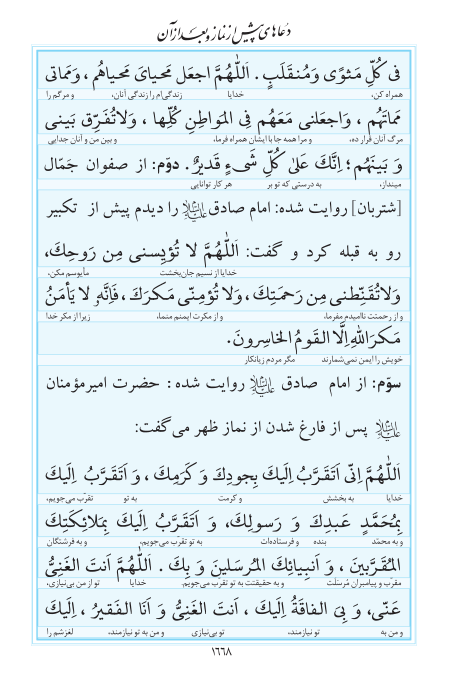 دعاهای پیش از نماز و بعد از آن
فی کُلِّ مَثوًی وَ مُنقَلَبٍ . اَللّٰهُمَّ اجعَل مَحیایَ مَحیاهُم ، وَمَماتی
همراه کن، خدایا زندگی‌ام را زندگی آنان، و مرگم را
مَماتَهُم ، وَاجعَلنی مَعَهُم فِی المَواطِنِ کُلِّها ، وَلاتُفَرِّق بَینی
مرگ آنان قرار ده، و مرا همه جا با ایشان همراه فرما، و بین من و آنان جدایی
وَ بَینَهُم ؛ اِنَّکَ عَلیٰ کُلِّ شَیءٍ قَدیرٌ . دوّم: از صفوان جَمّال
مینداز، به درستی که تو بر هر کار توانایی
[شتربان] روایت شده: امام صادق علیه‌السلام را دیدم پیش از تکبیر
رو به قبله کرد و گفت: اَللّٰهُمَّ لا تُؤیِسنی مِن رَوحِکَ،
خدایا از نسیم جان‌بخشت مأیوسم مکن،
وَلاتُقَنِّطنی مِن رَحمَتِکَ ، وَلا تُؤمِنّی مَکرَکَ ، فَاِنَّهُ لا یَأمَنُ
و از رحمتت ناامیدم مفرما، و از مکرت ایمنم منما، زیرا از مکر خدا
مَکرَاللهِ اِلَّا القَومُ الخاسِرونَ.
خویش را ایمن نمی‌شمارند مگر مردم زیانکار
سوّم: از امام صادق علیه‌السلام روایت شده : حضرت امیرمؤمنان
علیه‌السلام پس از فارغ شدن از نماز ظهر می‌گفت:
اَللّٰهُمَّ اِنّی اَتَقَرَّبُ اِلَیکَ بِجودِکَ وَ کَرَمِکَ ، وَ اَتَقَرَّبُ اِلَیکَ
خدایا به بخشش و کرمت به تو تقرّب می‌جویم،
بِمُحَمَّدٍ عَبدِکَ وَ رَسولِکَ، وَ اَتَقَرَّبُ اِلَیکَ بِمَلائِکَتِکَ
و به محمّد بنده و فرستاده‌ات به تو تقرب می‌جویم، و به فرشتگان
المُقَرَّبینَ ، وَ اَنبِیائِکَ المُرسَلینَ وَ بِکَ . اَللّٰهُمَّ اَنتَ الغَنِیُّ
مقرّب و پیامبران مُرسَلت و به حقیقتت به تو تقرب می‌جویم. خدایا تو از من بی‌نیازی،
عَنّی، وَ بِیَ الفاقَةُ اِلَیکَ ، اَنتَ الغَنِیُّ وَ اَنَا الفَقیرُ ، اِلَیکَ
و من به تو نیازمند، تو بی‌نیازی و من به تو نیازمند، لغزشم را
۱۶۶۸